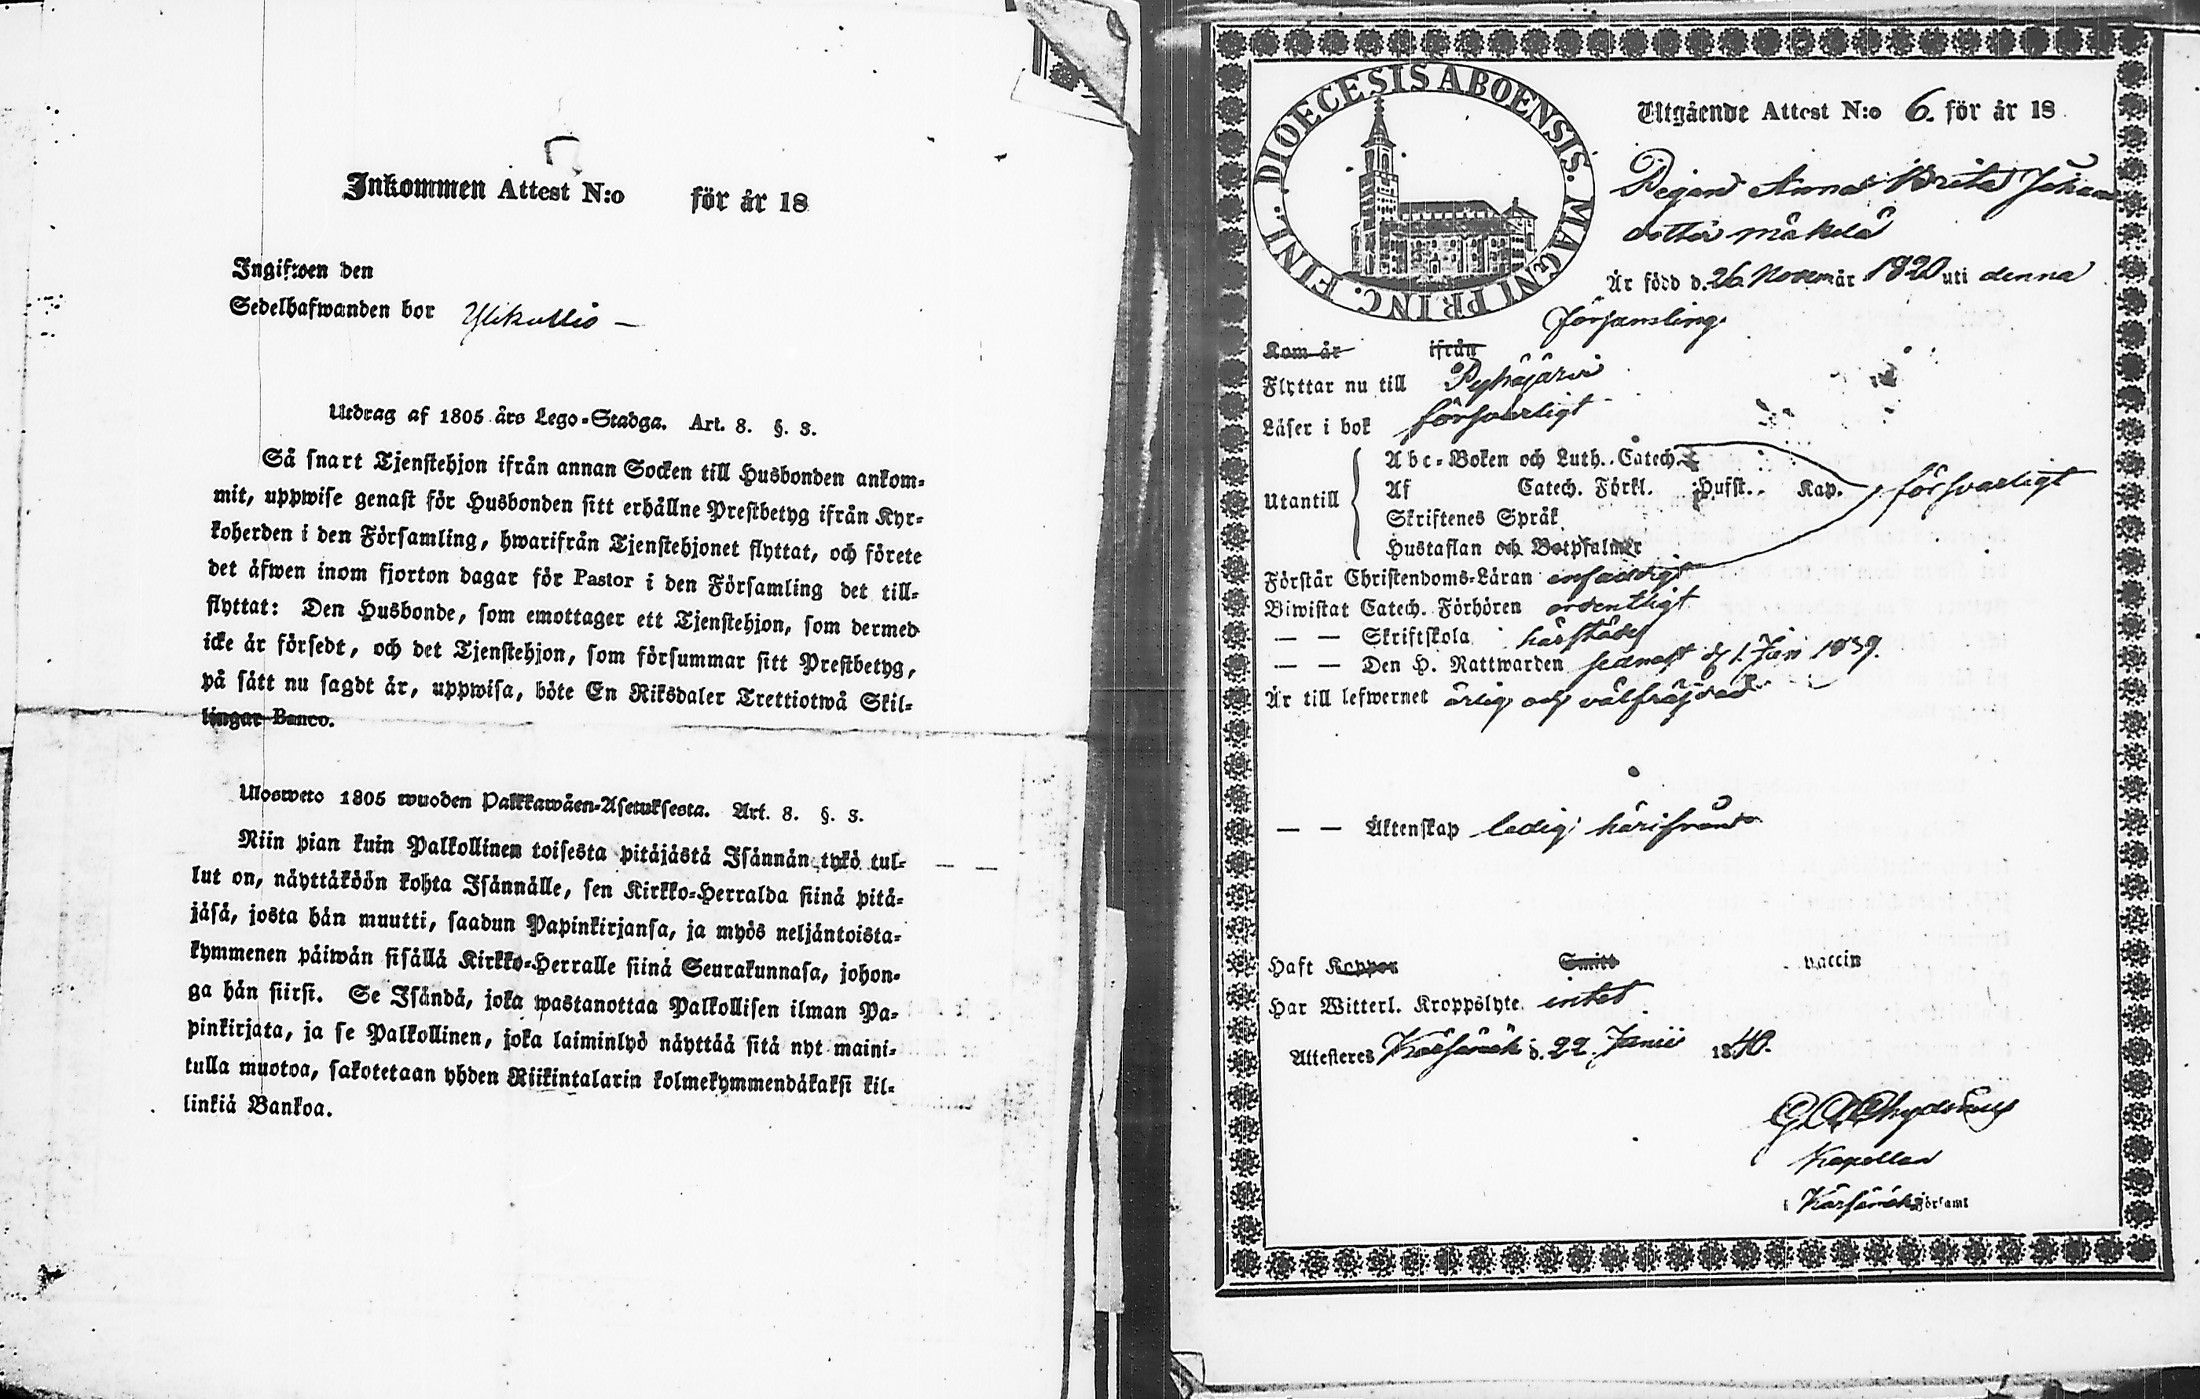 Inkommen Attest N:o för år 18
Ingifwen den
Sedelhafwanden bor Ylikullio —
Utdrag af 1805 års Lego-Stadga. Art. 8. §. 3.
Så snart Tjenstehjon ifrån annan Socken till Husbonden ankom-
mit, uppwise genast för Husbonden sitt erhållne Prestbetyg ifrån Kyr-
koherden i den Församling, hwarifrån Tjenstehjonet flyttat, och förete
det äfwen inom fjorton dagar för Pastor i den Församling det till-
flyttat: Den Husbonde, som emottager ett Tjenstehjon, som dermed
icke är försedt, och det Tjenstehjon, som försummar sitt Prestbetyg,
på sätt nu sagdt är, uppwisa, böte En Riksdaler Trettiotwå Skil-
lingar Banco.
Ulosweto 1805 wuoden Palkkawäen-Asetuksesta. Art. 8. §. 3.
Niin pian kuin Palkollinen toisesta pitäjästä Isännän tykö tul-
lut on, näyttäköön kohta Isännälle, sen Kirkko-Herralda siinä pitä-
jäsä, josta hän muutti, saadun Papinkirjansa, ja myös neljäntoista-
kymmenen päiwän sisällä Kirkko-Herralle siinä Seurakunnasa, johon-
ga hän siirsi. Se Isändä, joka wastanottaa Palkollisen ilman Pa-
pinkirjata, ja se Palkollinen, joka laiminlyö näyttää sitä nyt maini-
tulla muotoa, sakotetaan yhden Riikintalarin kolmekymmendäkaksi kil-
linkiä Bankoa.
DIOECESIS ABOENSIS. MAGNI PRINC. FINL.
Utgående Attest N:o 6. för år 18
Pigan Anna Brita Johans
dotter Mäkelä
Är född d. 26 Novem år 1820 uti denna
församling.
Kom år ifrån
Flyttar nu till Pyhäjärvi
Läser i bok försvarligt
Utantill
Abc-Boken och Luth. Catech.
Af Catech. Förkl. Hufst. Kap. försvarligt
Skriftenes Språk
Hustaflan och Botpsalmer
Förstår Christendoms-Läran enfaldigt
Biwistat Catech. Förhören ordentligt
— — Skriftskola härstädes
— — Den H. Nattwarden sednast d 1 Jun 1839.
Är till lefwernet ärlig och välfräjdad
— — Äktenskap ledig härifrån
Haft Koppor Smitt vaccin
Har Witterl. Kroppslyte intet
Attesteres Kärsämäki d. 22 Junii 1840.
G. A. Chydenius
Kapellan
i Kärsämäki Förfaml